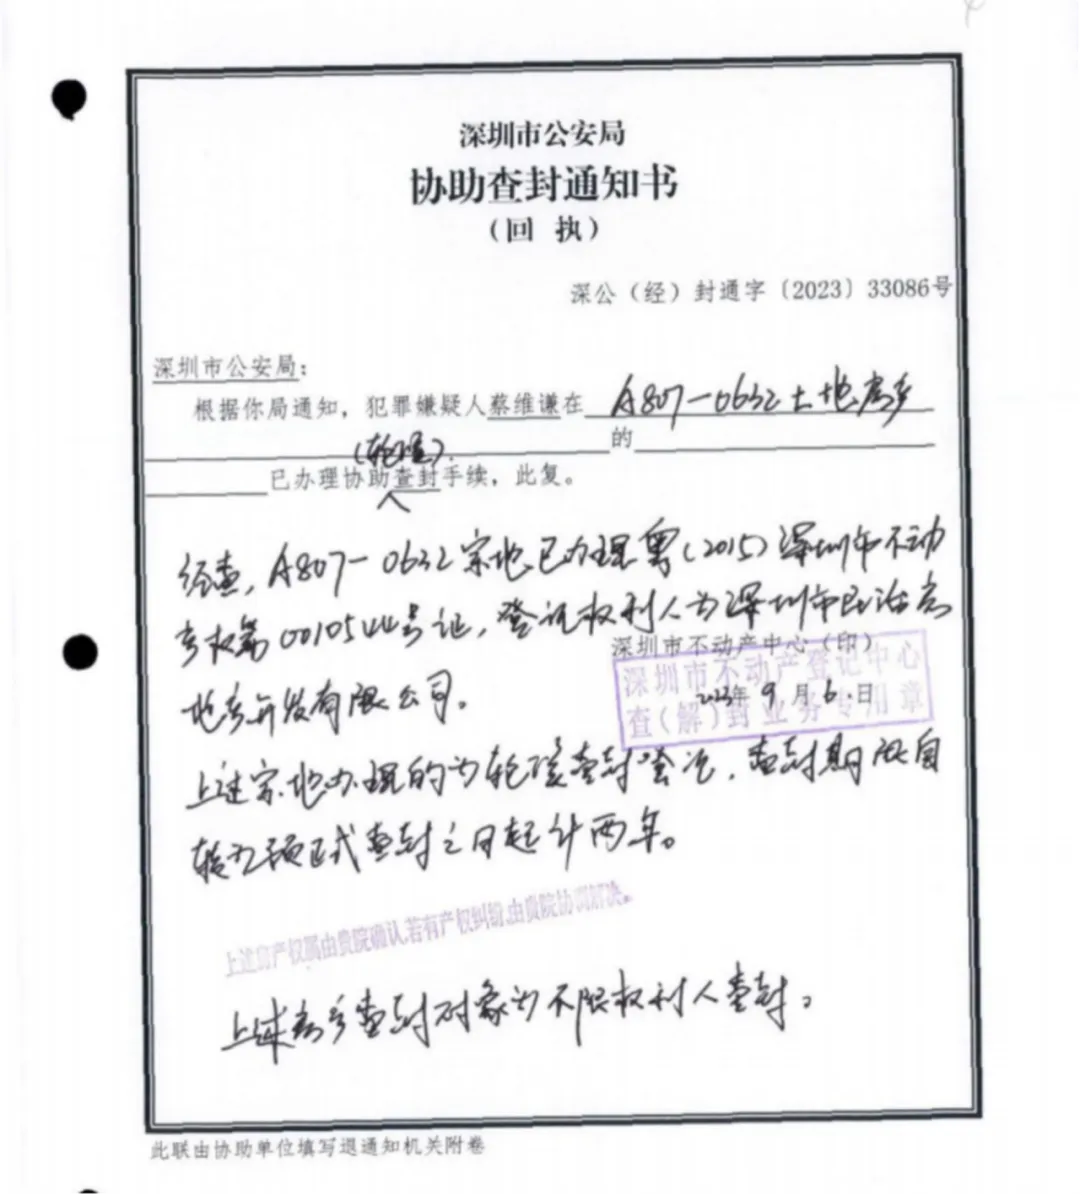 深圳市公安局
协助查封通知书
（回 执）
深公（经）封通字〔2023〕33086号
深圳市公安局：
根据你局通知，犯罪嫌疑人蔡维谦在 A807-0632土地房产
的
(轮候)
已办理协助查封手续，此复。
经查，A807-0632宗地已办理粤(2015)深圳市不动
产权第0010544号证，登记权利人为深圳市民治房
深圳市不动产中心（印）
深圳市不动产登记中心
地产开发有限公司。
2023年9月6日
查(解)封业务专用章
上述宗地办理的为轮候查封 ，查封期限自
转为正式查封之日起计两年。
上述房产权属由贵院确认,若有产权纠纷,由贵院协调解决。
上述房产查封对象为不限权利人查封。
此联由协助单位填写退通知机关附卷